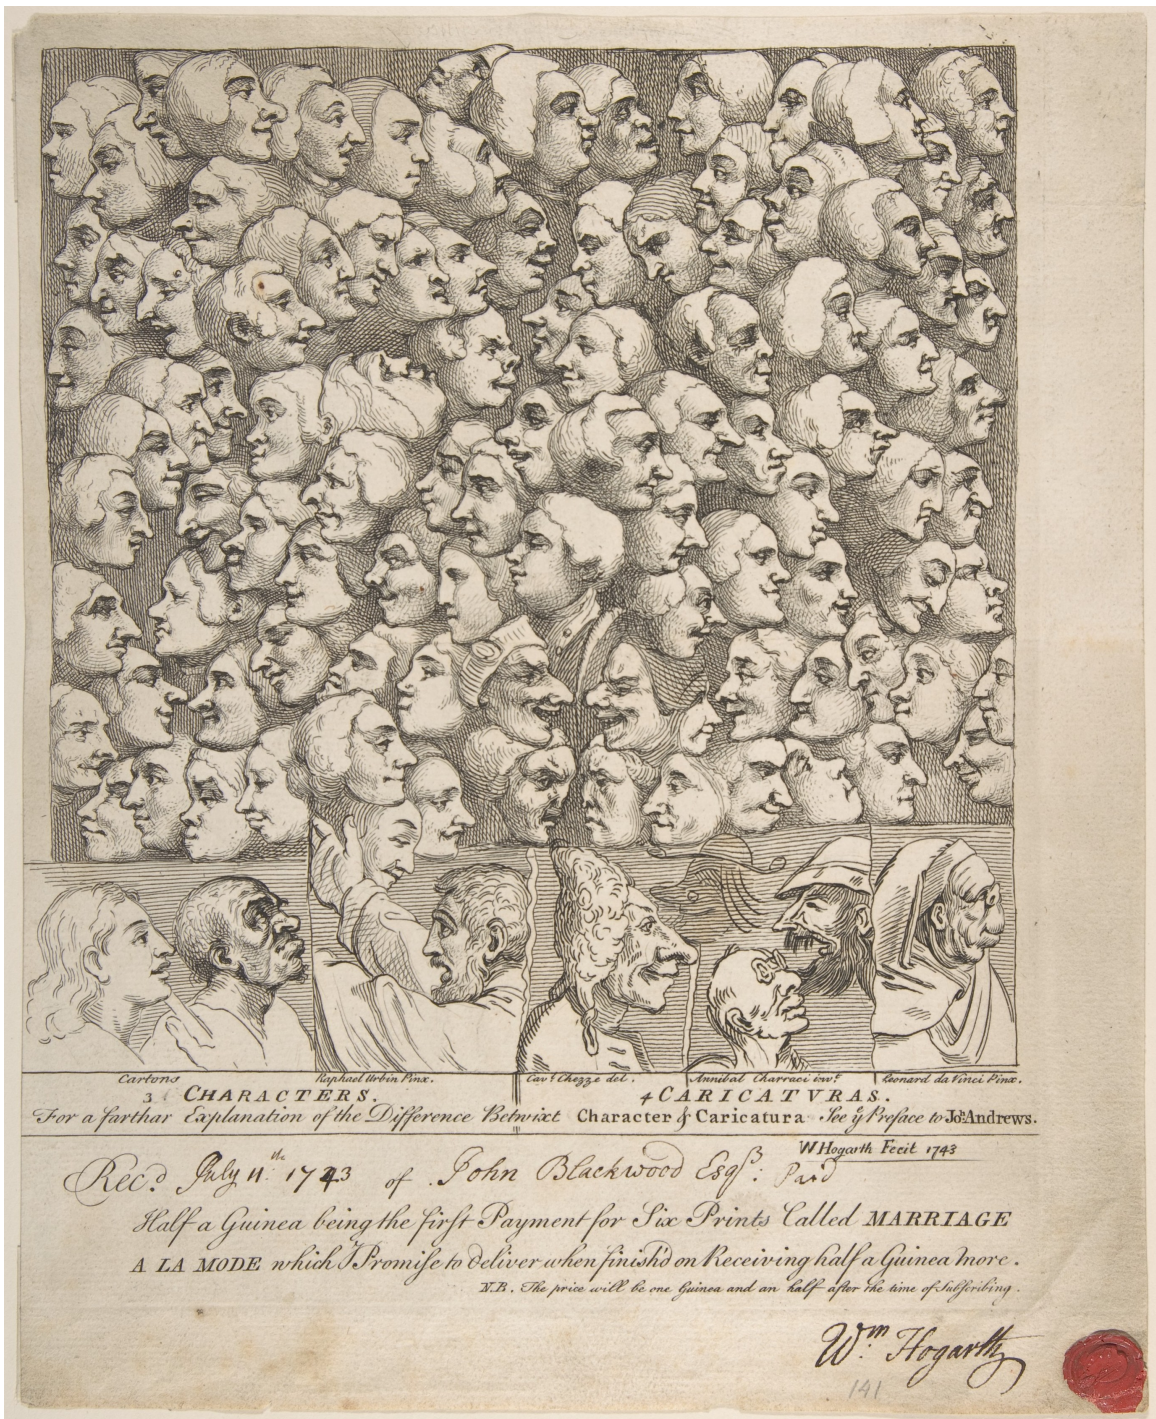 Cartons Raphael Urbin Pinx. Cavr. Chezze del. Annibal Charraci invt. Leonard da Vinci Pinx.
3 CHARACTERS. 4 CARICATVRAS.
For a farthar Explanation of the Difference Betwixt Character & Caricatura See ye Preface to Joh. Andrews.
W Hogarth Fecit 1743
Recd. July 11th. 1743 of John Blackwood Esqr. Paid
Half a Guinea being the first Payment for Six Prints Called MARRIAGE
A LA MODE which I Promise to deliver when finish'd on Receiving half a Guinea more.
N.B. The price will be one Guinea and an half after the time of Subscribing.
Wm. Hogarth
141